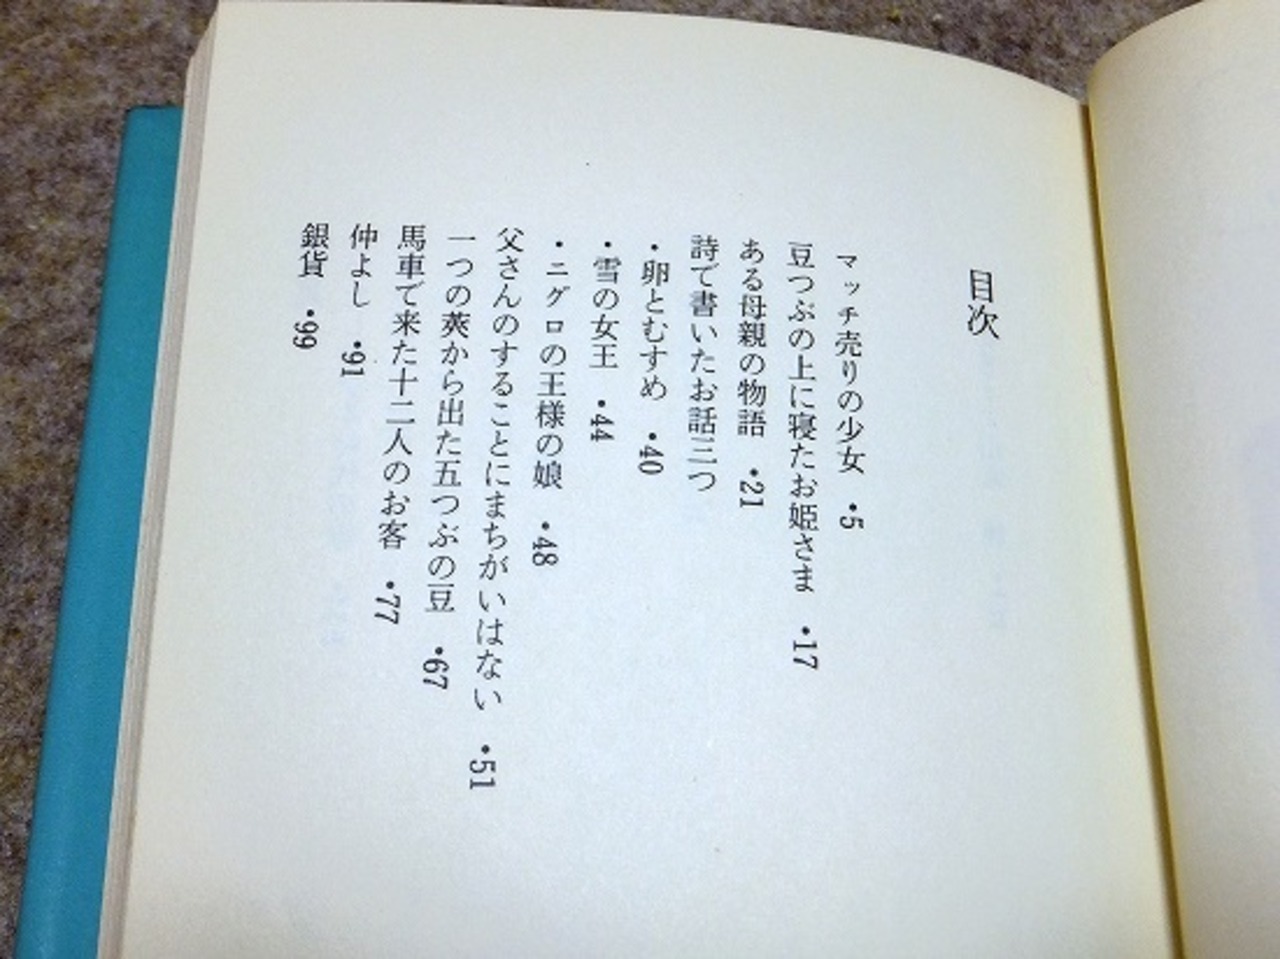 目次
マッチ売りの少女 •5
豆つぶの上に寝たお姫さま •17
ある母親の物語 •21
詩で書いたお話三つ
・卵とむすめ •40
・雪の女王 •44
・ニグロの王様の娘 •48
父さんのすることにまちがいはない •51
一つの莢から出た五つぶの豆 •67
馬車で来た十二人のお客 •77
仲よし •91
銀貨 •99